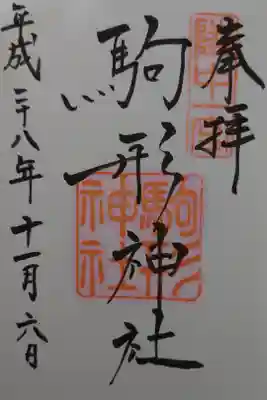 奉拝
駒形神社
駒形
神社
平成二十八年十一月六日